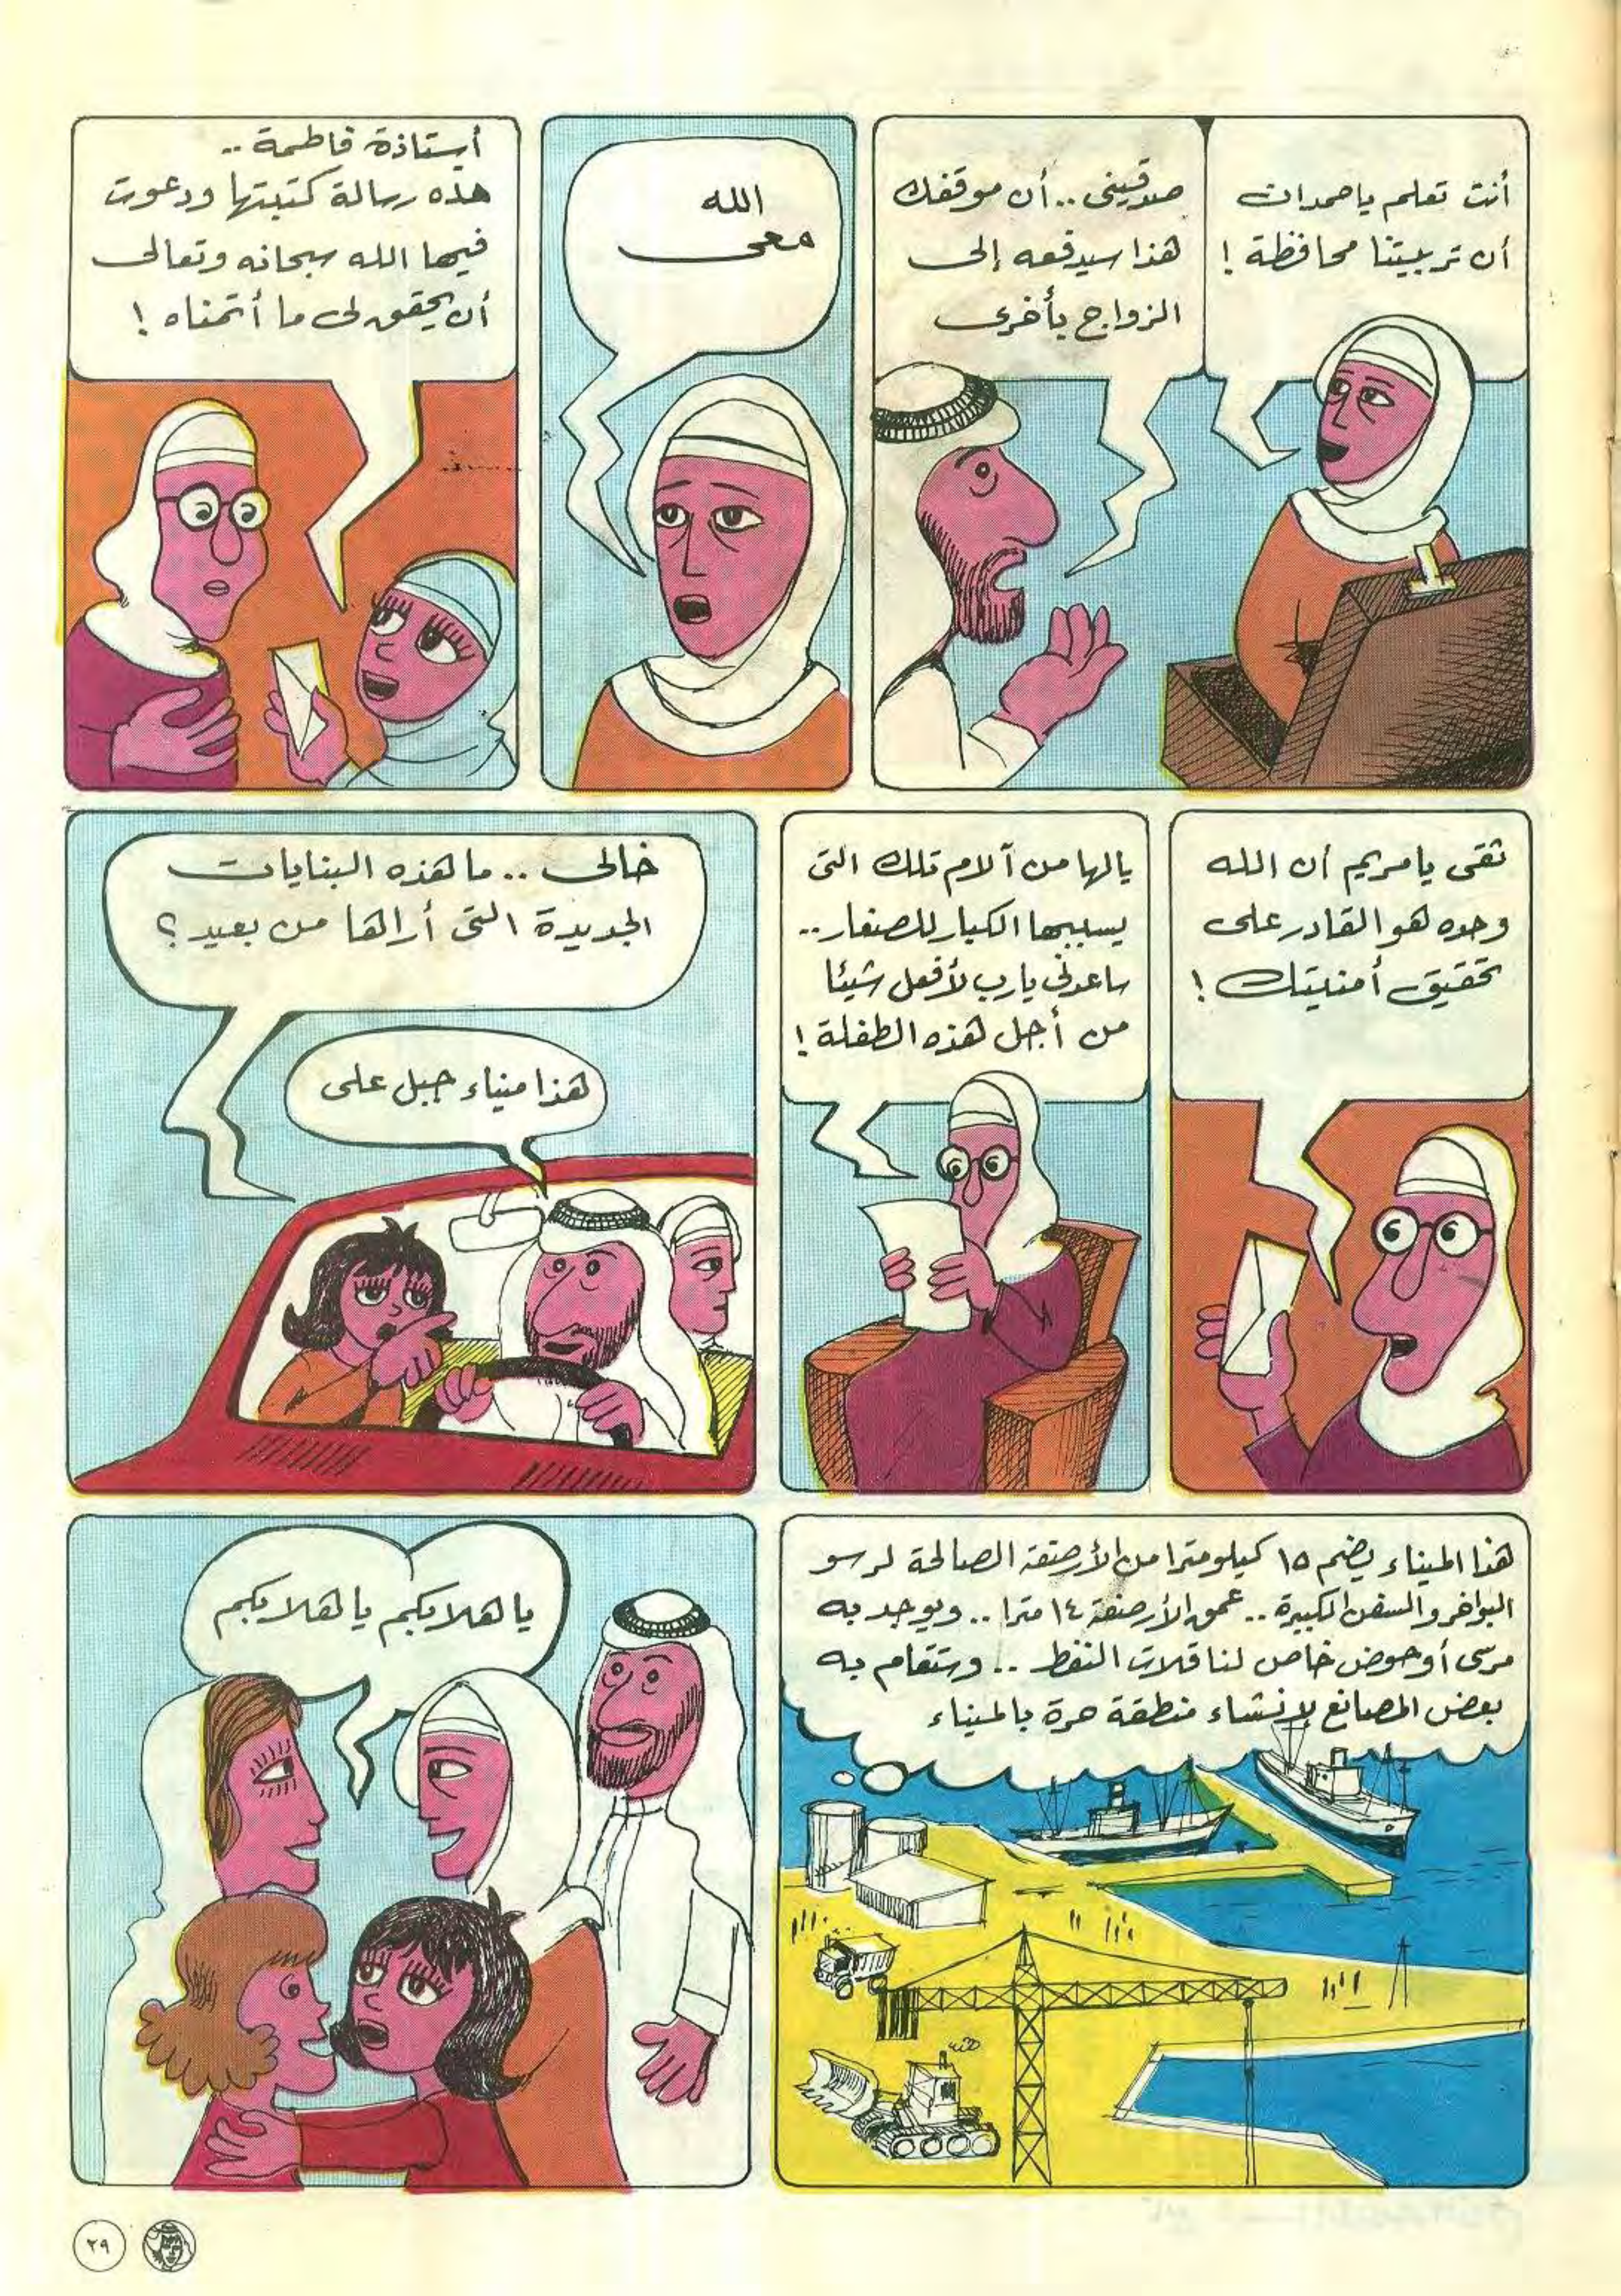 أنت تعلم ياحمدان
أن تربيتنا محافظة !
صدقيني .. أن موقفك
هذا سيدفعه إلى
الزواج بأخرى
الله
معى
أستاذة فاطمة ..
هذه رسالة كتبتها ودعوت
فيها الله سبحانه وتعالى
أن يحقق لى ما أتمناه !
ثقى يا مريم أن الله
وحده هو القادر على
تحقيق أمنيتك !
يالها من آلام تلك التى
يسببها الكبار للصغار ..
ساعدنى يارب لأفعل شيئا
من أجل هذه الطفلة !
خالى .. ما هذه البنايات
الجديدة التى أراها من بعيد ؟
هذا ميناء جبل على
هذا الميناء يضم ١٥ كيلو مترا من الأرصفة الصالحة لرسو
البواخر والسفن الكبيرة .. عمق الأرصفة ١٤ مترا .. ويوجد به
مرسى أو حوض خاص لناقلات النفط .. وستقام به
بعض المصانع لإنشاء منطقة حرة بالميناء
يا هلا بكم يا هلا بكم
٢٩